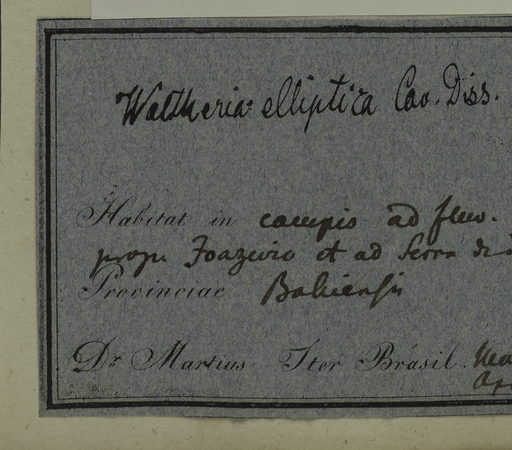 Waltheria elliptica Cav. Diss.
Habitat in campis ad fluv.
prope Joazeiro et ad Serra
Provinciae Bahiensis
Dr Martius Iter Brasil.